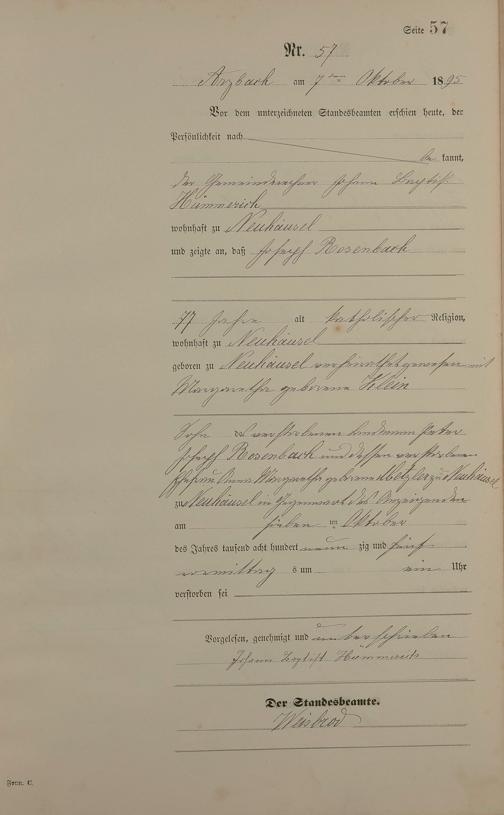 Seite 57
Nr. 57
Arzbach am 7ten Oktober 1895
Vor dem unterzeichneten Standesbeamten erschien heute, der
Persönlichkeit nach
be kannt,
der Johann Baptist
Hümmerich
wohnhaft zu Neuhäusel
und zeigte an, daß Joseph Rosenbach
77 Jahre alt katholischer Religion,
wohnhaft zu Neuhäusel
geboren zu Neuhäusel verheirathet gewesen mit
Margaretha geborene Klein
Sohn des verstorbenen Peter
Joseph Rosenbach und dessen verstorbenen
Ehefrau Anna Margaretha geborene Metzler zu Neuhäusel
zu Neuhäusel in Gegenwart des Anzeigenden
am sieben ten Oktober
des Jahres tausend acht hundert neun zig und fünf
vormittag s um ein Uhr
verstorben sei
Vorgelesen, genehmigt und unterschrieben
Johann Baptist Hümmerich
Der Standesbeamte.
Weisbrod
Form. C.